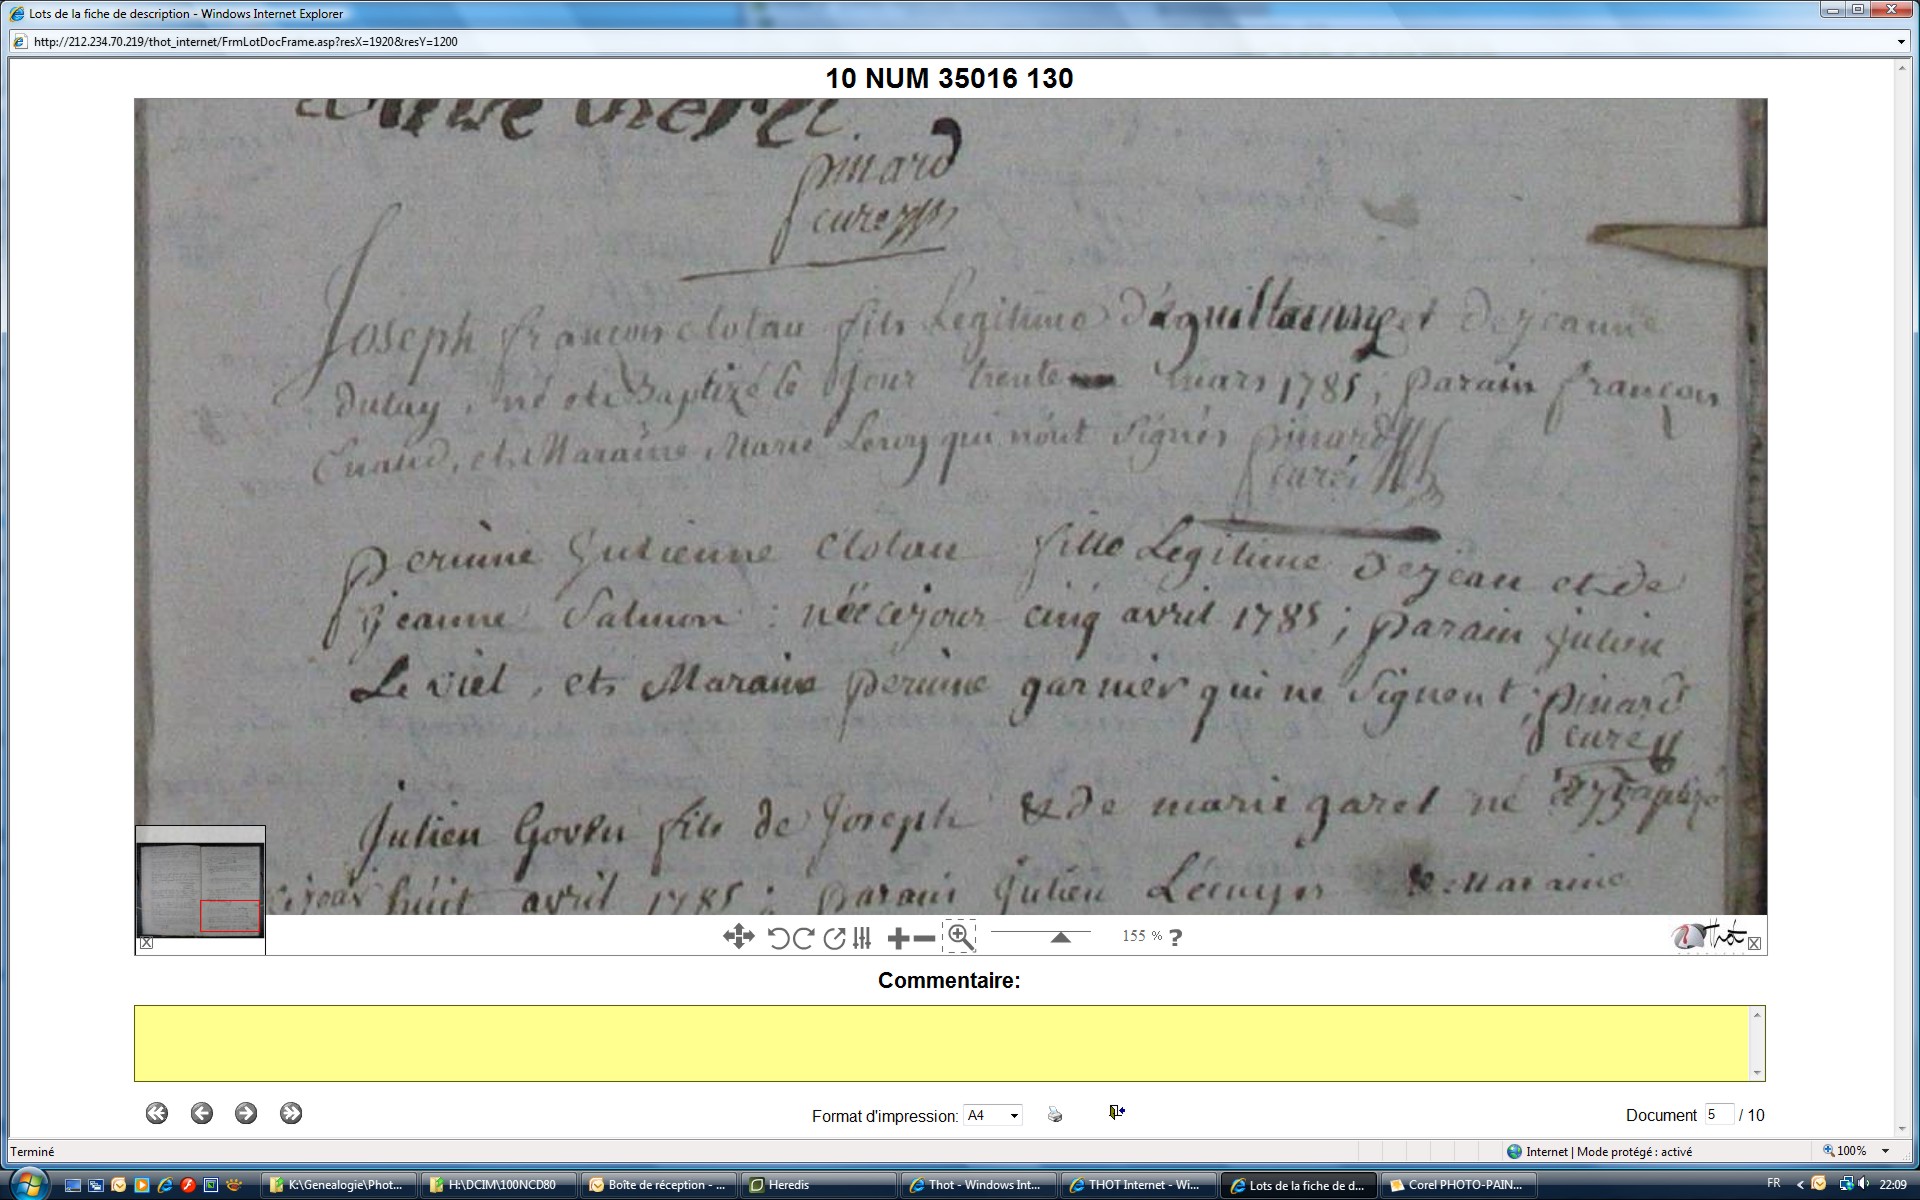 Lots de la fiche de description - Windows Internet Explorer
http://212.234.70.219/thot_internet/FrmLotDocFrame.asp?resX=1920&resY=1200
10 NUM 35016 130
pinard
curé
Joseph françois clolau fils Legitime déguillaume et dejeanne
dulay, né et Baptizé le jour trente mars 1785; parain françois
et Maraine Marie Leroy qui n'ont signés pinard
curé
perinne Julienne clolau fille Legitime dejean et de
jeanne Salmon : née cejour cinq avril 1785; parain julien
Le viel, et Maraine perinne garnier qui ne signent; pinard
curé
julien Goven fils de Joseph & de marie garel né et Baptizé
cejour huit avril 1785; parain Julien Lécuyer & Maraine
155 % ?
Thot
Commentaire:
Format d'impression: A4
Document 5 / 10
Terminé
Internet | Mode protégé : activé
100%
K:\Genealogie\Phot...
H:\DCIM\100NCD80
Boîte de réception - ...
Heredis
Thot - Windows Int...
THOT Internet - Wi...
Lots de la fiche de d...
Corel PHOTO-PAIN...
FR
22:09